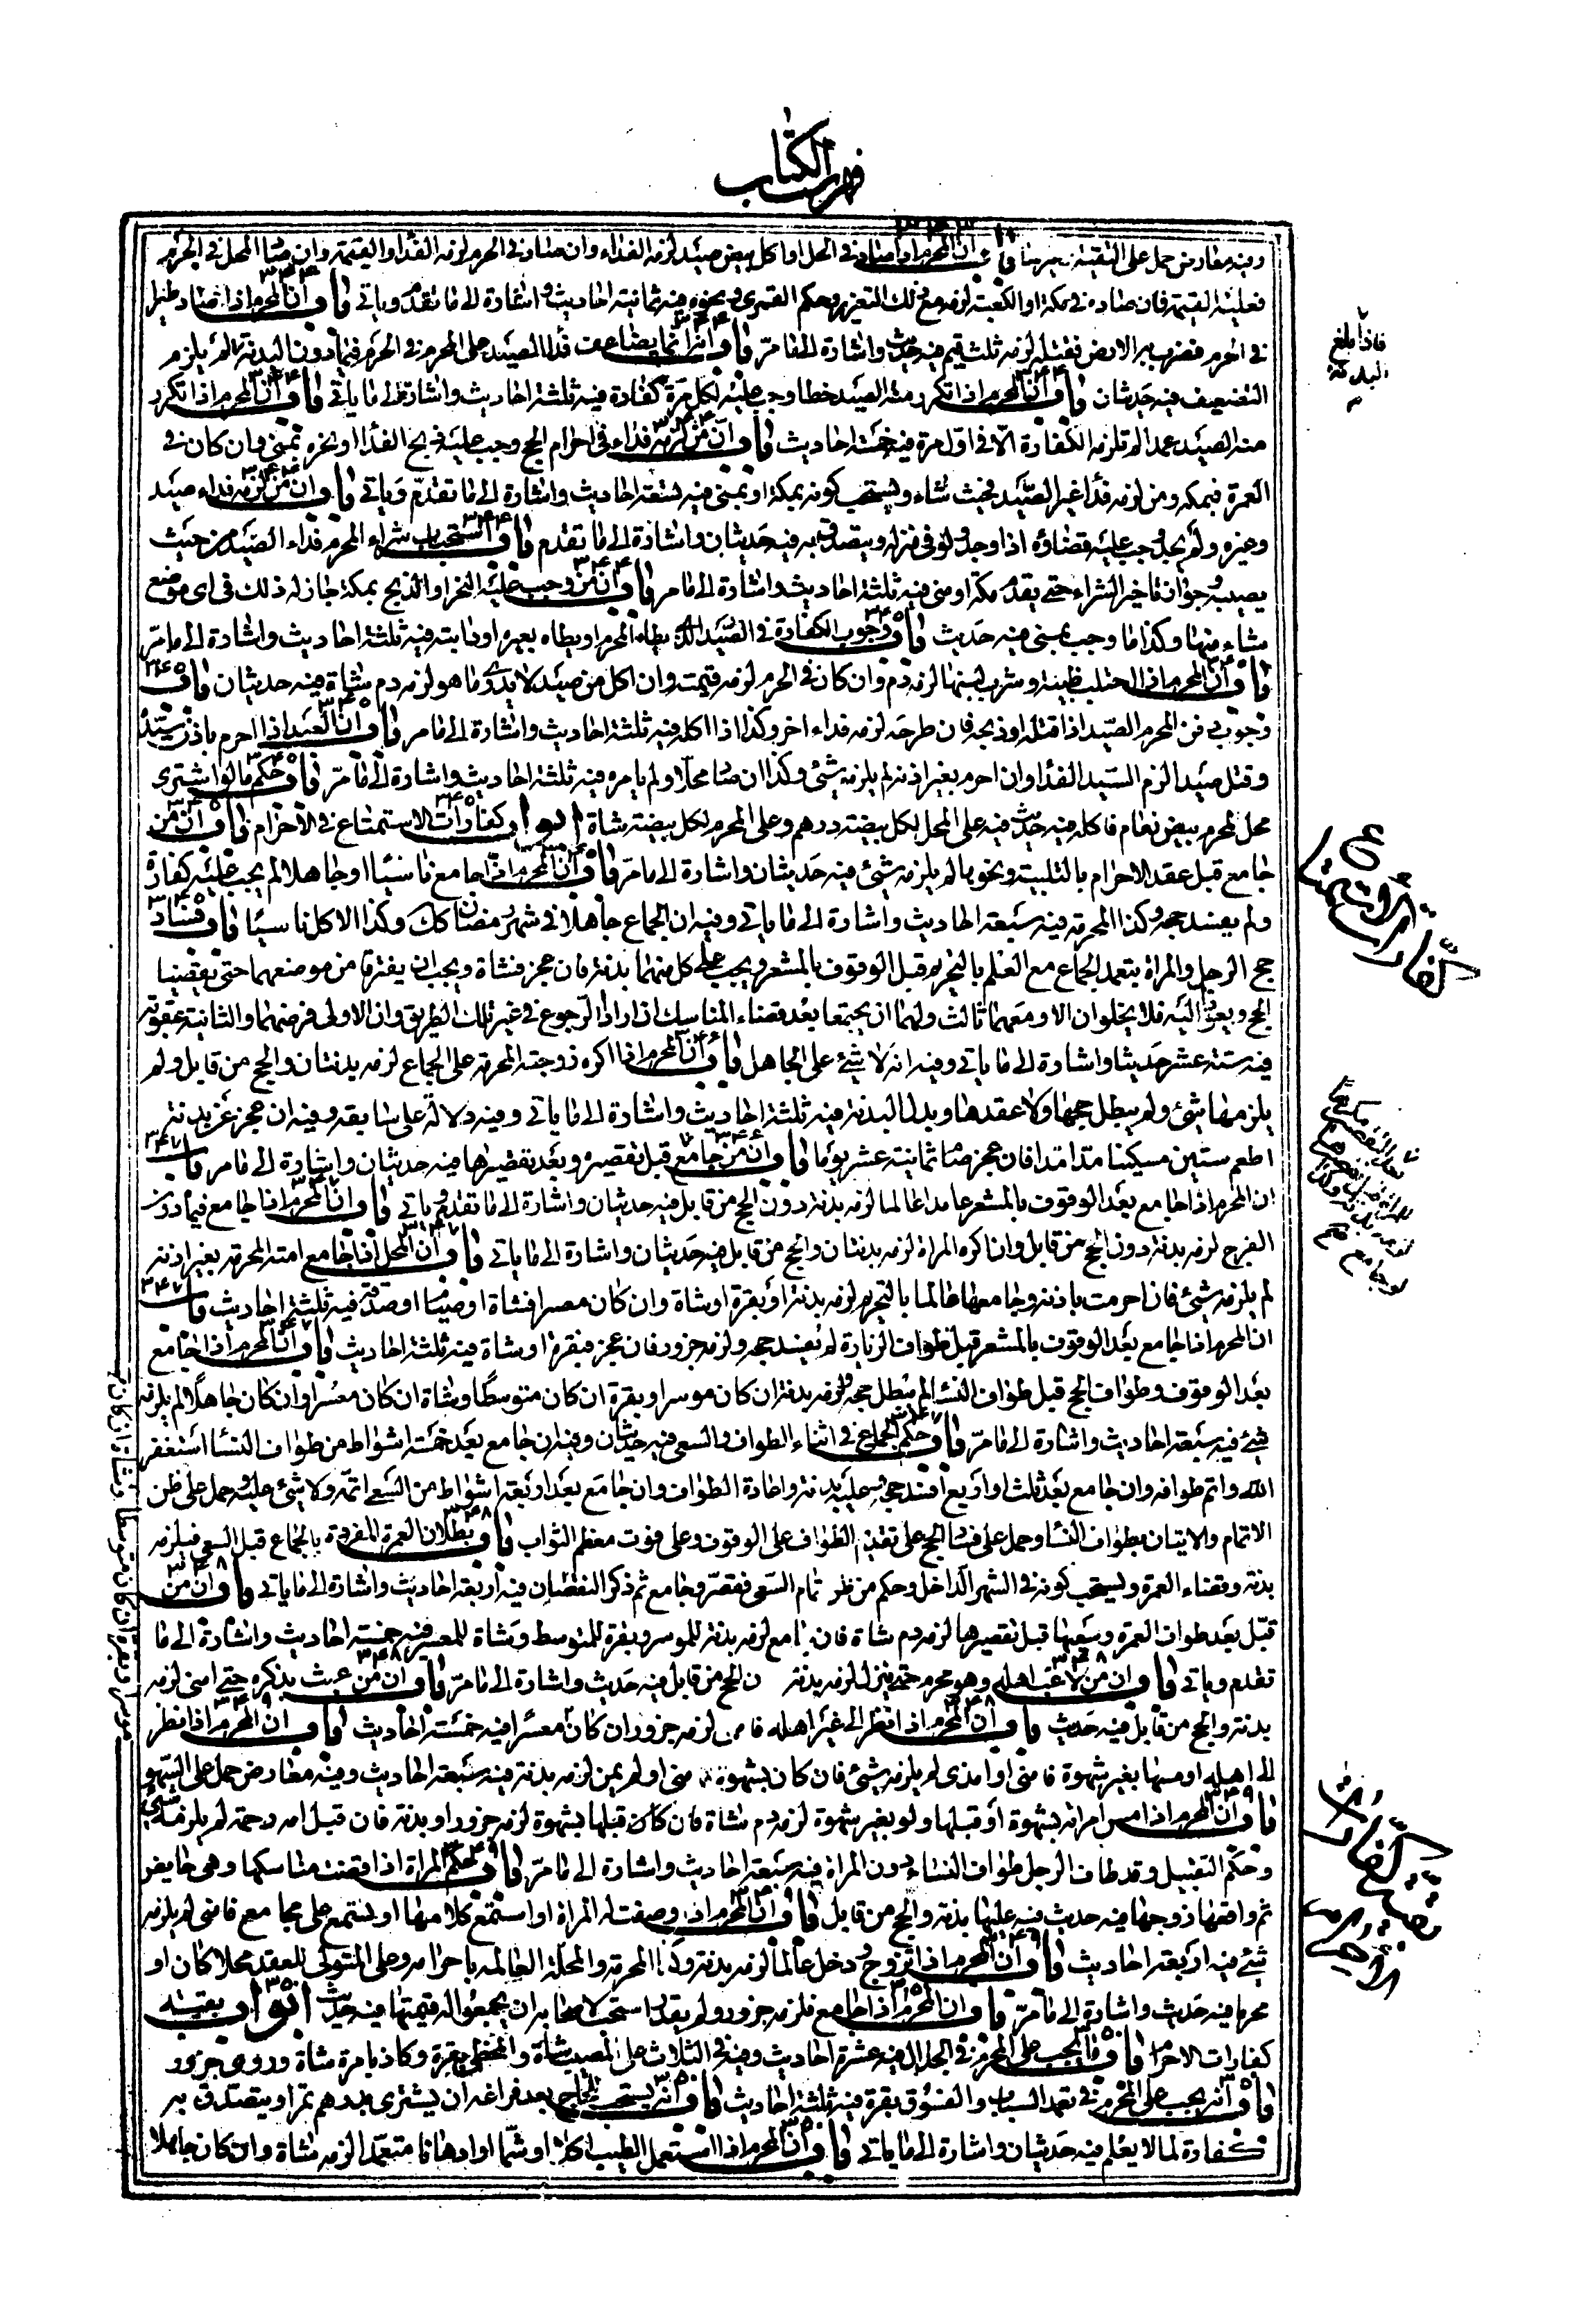 فهرست الكتاب
وفيه معارض حمل على التقية وغيرها باب ان المحرم اذا صاد في الحل او اكل بيض صيد لزمه الفداء وان صاد في الحرم لزمه الفداء والقيمة وان صاد المحل في الحرم
فعليه القيمة فان صاده في مكة او الكعبة لزمه مع ذلك التعزير وحكم القمري ونحوه فيه ثمانية احاديث واشارة الى ما تقدم وياتي باب ان المحرم اذا صاد طيرا
في الحرم فضرب به الارض فقتله لزمه ثلث قيم فيه حديث واشارة الى ما مر باب انه انما يضاعف فداء الصيد على المحرم في الحرم فيما دون البدنة ثم لم يلزم
التضعيف فيه حديثان باب ان المحرم اذا تكرر منه الصيد خطا وجب عليه لكل مرة كفارة فيه ثلثة احاديث واشارة الى ما ياتي باب ان المحرم اذا تكرر
منه الصيد عمدا لم تلزمه الكفارة الا في اول مرة فيه خمسة احاديث باب ان من لزمه فداء في احرام الحج وجب عليه ذبح الفداء او نحره بمنى وان كان في
العمرة فبمكة ومن لزمه فداء غير الصيد فحيث شاء ويستحب كونه بمكة او بمنى فيه ستة احاديث واشارة الى ما تقدم وياتي باب ان من لزمه فداء صيد
وغيره ولم يجد وجب عليه قضاؤه اذا وجد ولو في منزله ويتصدق به فيه حديثان واشارة الى ما تقدم باب استحباب شراء المحرم فداء الصيد من حيث
يصيبه وجواز تاخير الشراء حتى يقدم مكة او منى فيه ثلثة احاديث واشارة الى ما مر باب ان من وجب عليه النحر او الذبح بمكة جاز له ذلك في اى موضع
شاء منها وكذا ما وجب بمنى فيه حديث باب وجوب الكفارة في الصيد الذى يطاه المحرم او يطاه بعيره او دابته فيه ثلثة احاديث واشارة الى ما مر
باب ان المحرم اذا احتلب ظبية وشرب لبنها لزمه دم وان كان في الحرم لزمه قيمته وان اكل من صيد لا يدرى ما هو لزمه دم شاة فيه حديثان باب
وجوب دفن المحرم الصيد اذا قتله او ذبحه فان طرحه لزمه فداء اخر وكذا اذا اكله فيه ثلثة احاديث واشارة الى ما مر باب ان العبد اذا احرم باذن سيده
وقتل صيدا لزم السيد الفداء وان احرم بغير اذنه لم يلزمه شئ وكذا ان صاد محلا ولم يامره فيه ثلثة احاديث واشارة الى ما مر باب حكم ما لو اشترى
محل لمحرم بيض نعام فاكله فيه حديث فيه على المحل لكل بيضة درهم وعلى المحرم لكل بيضة شاة ابواب كفارات الاستمتاع في الاحرام باب ان من
جامع قبل عقد الاحرام بالتلبية ونحوها لم يلزمه شئ فيه حديثان واشارة الى ما مر باب ان المحرم اذا جامع ناسيا او جاهلا لم يجب عليه كفارة
ولم يفسد حجه وكذا المحرمة فيه سبعة احاديث واشارة الى ما ياتي وفيه ان الجماع جاهلا في شهر رمضان كك وكذا الاكل ناسيا باب فساد
حج الرجل والمراة بتعمد الجماع مع العلم بالتحريم قبل الوقوف بالمشعر ويجب على كل منهما بدنة فان عجز فشاة ويجب ان يفترقا من موضعهما حتى يقضيا
الحج ويعودا اليه فلا يخلوان الا ومعهما ثالث ولهما ان يجتمعا بعد قضاء المناسك ان ارادا الرجوع في غير تلك الطريق وان الاولى فرضهما والثانية عقوبة
فيه ستة عشر حديثا واشارة الى ما ياتي وفيه انه لا شئ على الجاهل باب ان المحرم اذا اكره زوجته المحرمة على الجماع لزمه بدنتان والحج من قابل ولم
يلزمها شئ ولم يبطل حجها ولا عقدها وبدل البدنة فيه ثلثة احاديث واشارة الى ما ياتي وفيه دلالة على سابقه وفيه ان عجز عن بدنة
اطعم ستين مسكينا مدا مدا فان عجز صام ثمانية عشر يوما باب ان من جامع قبل تقصيره وبعد تقصيرها فيه حديثان واشارة الى ما مر باب
ان المحرم اذا جامع بعد الوقوف بالمشعر عامدا عالما لزمه بدنة دون الحج من قابل فيه حديثان واشارة الى ما تقدم وياتي باب ان المحرم اذا جامع فيما دون
الفرج لزمه بدنة دون الحج من قابل وان اكره المراة لزمه بدنتان والحج من قابل فيه حديثان واشارة الى ما ياتي باب ان المحل اذا جامع امته المحرمة بغير اذنه
لم يلزمه شئ فان احرمت باذنه وجامعها عالما بالتحريم لزمه بدنة او بقرة او شاة وان كان معسرا فشاة او صيام او صدقة فيه ثلثة احاديث باب
ان المحرم اذا جامع بعد الوقوف بالمشعر قبل طواف الزيارة لم يفسد حجه ولزمه جزور فان عجز فبقرة او شاة فيه ثلثة احاديث باب ان المحرم اذا جامع
بعد الوقوف وطواف الحج قبل طواف النساء لم يبطل حجه ولزمه بدنة ان كان موسرا وبقرة ان كان متوسطا وشاة ان كان معسرا وان كان جاهلا لم يلزمه
شئ فيه سبعة احاديث واشارة الى ما مر باب حكم الجماع في اثناء الطواف والسعى فيه حديثان وفيه ان جامع بعد خمسة اشواط من طواف النساء استغفر
الله واتم طوافه وان جامع بعد ثلث او اربع افسد حجه وعليه بدنة واعادة الطواف وان جامع بعد اربعة اشواط من السعى اتمه ولا شئ عليه وحمل على ظن
الاتمام والاتيان بطواف النساء وحمل على فساد الحج على تقديم الطواف على الوقوف وعلى فوت معظم الثواب باب بطلان العمرة المفردة بالجماع قبل السعى فيلزمه
بدنة وقضاء العمرة ويستحب كونه في الشهر الداخل وحكم من ظن تمام السعى فقصر وجامع ثم ذكر النقصان فيه اربعة احاديث واشارة الى ما ياتي باب ان من
قبل بعد طواف العمرة وسعيها قبل تقصيرها لزمه دم شاة فان جامع لزمه بدنة للموسر وبقرة للمتوسط وشاة للمعسر فيه خمسة احاديث واشارة الى ما
تقدم وياتي باب ان من لاعب اهله وهو محرم حتى ينزل لزمه بدنة دون الحج من قابل فيه حديث واشارة الى ما مر باب ان من عبث بذكره حتى امنى لزمه
بدنة والحج من قابل فيه حديث باب ان المحرم اذا نظر الى غير اهله فامنى لزمه جزور ان كان معسرا فيه خمسة احاديث باب ان المحرم اذا نظر
الى اهله او مسها بغير شهوة فامنى او امذى لم يلزمه شئ فان كان بشهوة فامنى او لم يمن لزمه بدنة فيه سبعة احاديث وفيه معارض حمل على السهو
باب ان المحرم اذا مس امراته بشهوة او قبلها ولو بغير شهوة لزمه دم شاة فان كان قبلها بشهوة لزمه جزور او بدنة فان قبل امه رحمة لم يلزمه شئ
وحكم التقبيل وقد طاف الرجل طواف النساء دون المراة فيه سبعة احاديث واشارة الى ما مر باب حكم المراة اذا قضت مناسكها وهى حايض
ثم واقعها زوجها فيه حديث فيه عليها بدنة والحج من قابل باب ان المحرم اذا وصفت له المراة او استمع كلامها او يستمع على مجامع فامنى لم يلزمه
شئ فيه اربعة احاديث باب ان المحرم اذا تزوج ودخل عالما لزمه بدنة وكذا المحرمة والمحلة العالمة باحرامه وعلى المتولى للعقد محلا كان او
محرما فيه حديث واشارة الى ما مر باب ان المحرم اذا جامع فلزمه جزور ولم يقدر استحب لاصحابه ان يجمعوا له قيمتها فيه حديث ابواب بقية
كفارات الاحرام باب ما يجب على المحرم في الجدال فيه عشرة احاديث وفيه في الثلاث على المصيب شاة والمخطى بقرة وكاذبا مرة شاة وروى جزور
باب انه يجب على المحرم في تعمد السباب والفسوق بقرة فيه ثلثة احاديث باب انه يستحب للحاج بعد فراغه ان يشترى بدرهم تمرا ويتصدق به
كفارة لما لا يعلم فيه حديثان واشارة الى ما ياتي باب ان المحرم اذا استعمل الطيب اكلا او شما او ادهانا متعمدا لزمه شاة وان كان جاهلا
فاذا بلغ
البدنة
كفارات الاستمتاع
بقية كفارات
الاحرام